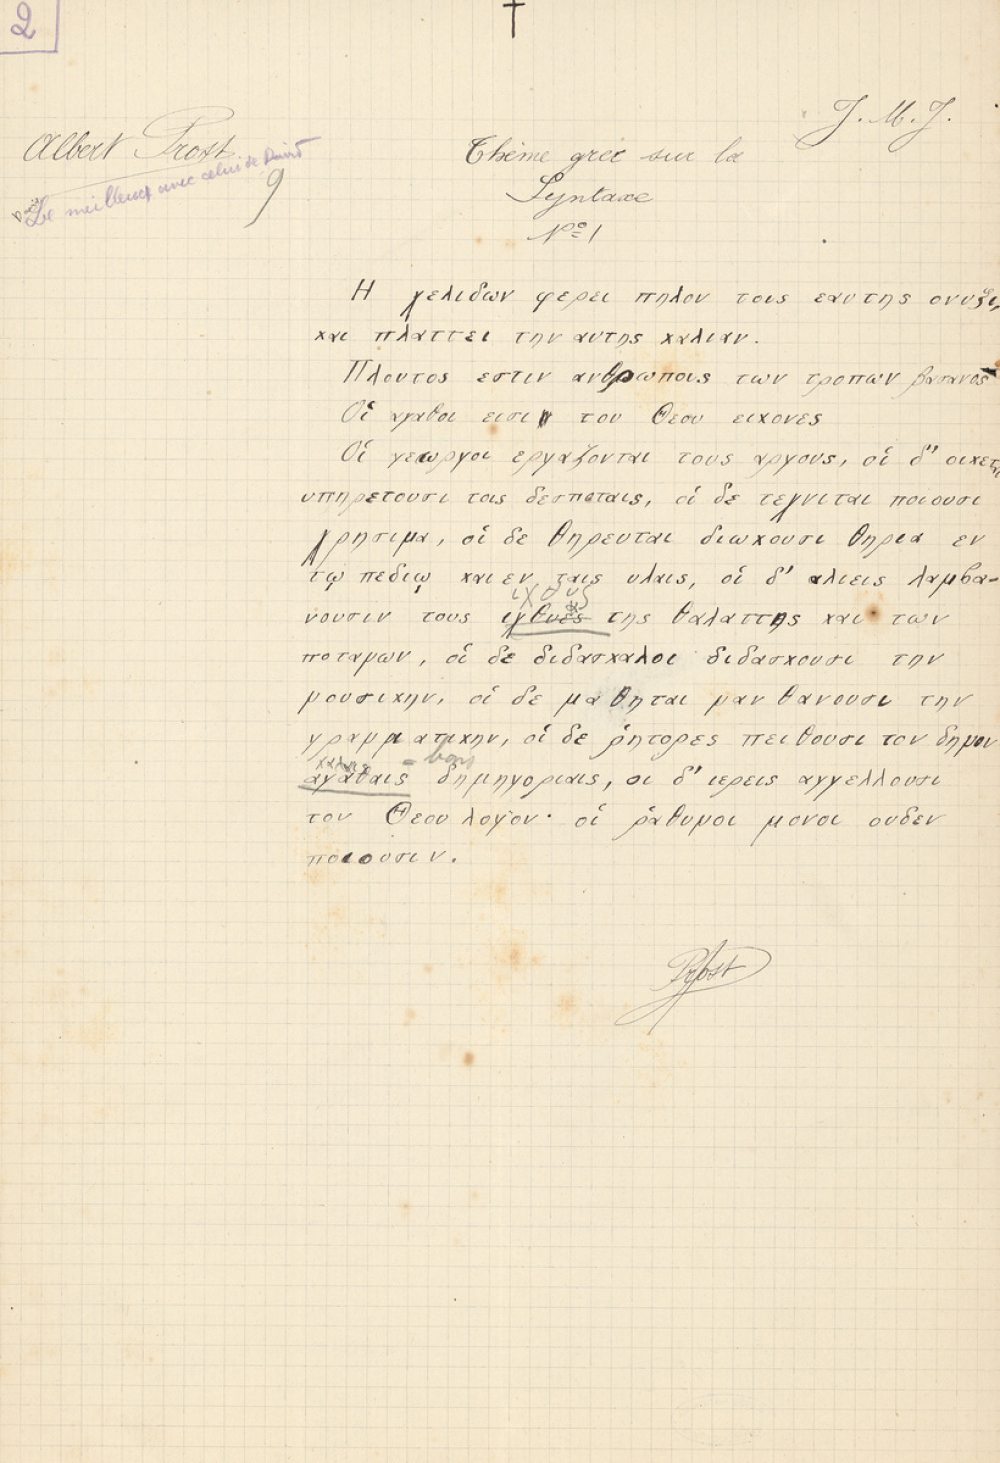 2
J. M. J.
Albert Prost
Le meilleur avec celui de David
9
Thème grec sur la
Syntaxe
Nº 1
Η χελιδων φερει πηλον τοις εαυτης ονυξι,
και πλαττει την αυτης καλιαν.
Πλουτος εστιν ανθρωποις των τροπων βασανος
Οἱ αγαθοι εισι του Θεου εικονες
Οἱ γεωργοι εργαζονται τους αργους, οἱ δ' οικεται
υπηρετουσι τοις δεσποταις, οἱ δε τεχνιται ποιουσι
χρησιμα, οἱ δε θηρευται διωκουσι θηρια εν
τῳ πεδιῳ και εν ταις υλαις, οἱ δ' αλιεις λαμβα-
ιχθυς
νουσιν τους ιχθυες της θαλαττης και των
ποταμων, οἱ δε διδασκαλοι διδασκουσι την
μουσικην, οἱ δε μαθηται μανθανουσι την
γραμματικην, οἱ δε ῥητορες πειθουσι τον δημον
= bons
αγαθαις δημηγοριαις, οι δ' ιερεις αγγελλουσι
τον Θεου λογον· οἱ ῥαθυμοι μονοι ουδεν
ποιουσιν.
Prost